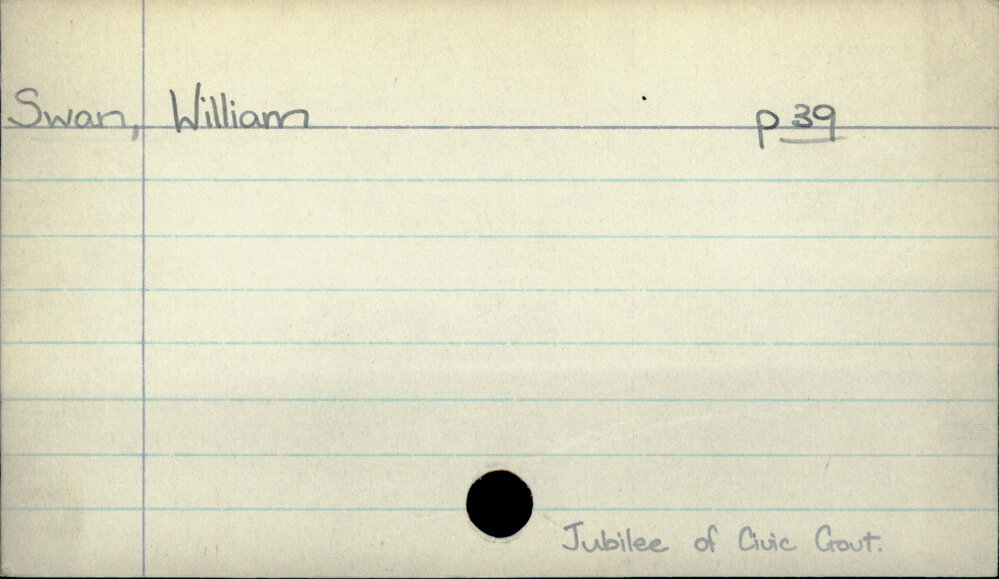 Swan, William p 39
Jubilee of Civic Govt.